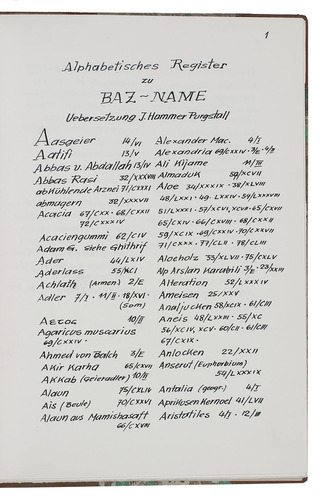 1
Alphabetisches Register
zu
BAZ-NAME
Uebersetzung J. Hammer Purgstall
Aasgeier 14/VI
Aatifi 13/V
Abbas u. Abdallah 13/IV
Abbas Rasi 32/XXXVIII
abkühlende Arznei 71/CXXXI
abmagern 32/XXXVII
Acacia 67/CXX · 68/CXXII
72/CXXXIV
Acaciengummi 62/CIV
Adam G. siehe Ghithrif
Ader 44/LXIV
Aderlass 55/XCI
Achlath (Armen) 2/E
Adler 7/I · 11/II · 18/XVI ·
(Som)
Aetos 10/II
Agaricus muscarius
69/CXXIV ·
Ahmed von Balch 3/E
Akir Karha 65/CXVII
Akkab (Geieradler) 10/II
Alaun 75/CXLIV
Als (Beule) 70/CXXVI
Alaun aus Mamishasaft
66/CXVIII
Alexander Mac. 4/I
Alexandria 69/CXXIV · 3/E · 4/I
Ali Kijame 11/III
Almaduk 59/XCVII
Aloe 34/XXXIX · 38/XLVIII
48/LXXI · 49 · LXXIV · 54/LXXXVIII
51/LXXXI · 57/XCVI, XCVII · 65/CXVII
65/CXIV · 66/CXVIII · 68/CXXII
59/XCIX · 69/CXXIV · 70/CXXVII
71/CXXX · 77/CLII · 78/CLIII
Aloeholz 33/XLVII · 75/CXLV
Alp Arslan Karabili 3/E · 23/XXIII
Alteration 52/LXXXIV
Ameisen 25/XXV
Analjucken 58/XCIX · 61/CIII
Aneis 48/LXXIII · 55/XC
56/XCIV, XCV · 60/CII · 61/CIII
67/CXIX ·
Anlocken 22/XXII
Anserut (Euphorbium)
54/LXXXIX
Antalia (geogr.) 4/I
Aprikosenkernoel 41/LVII
Aristotiles 4/I · 12/III